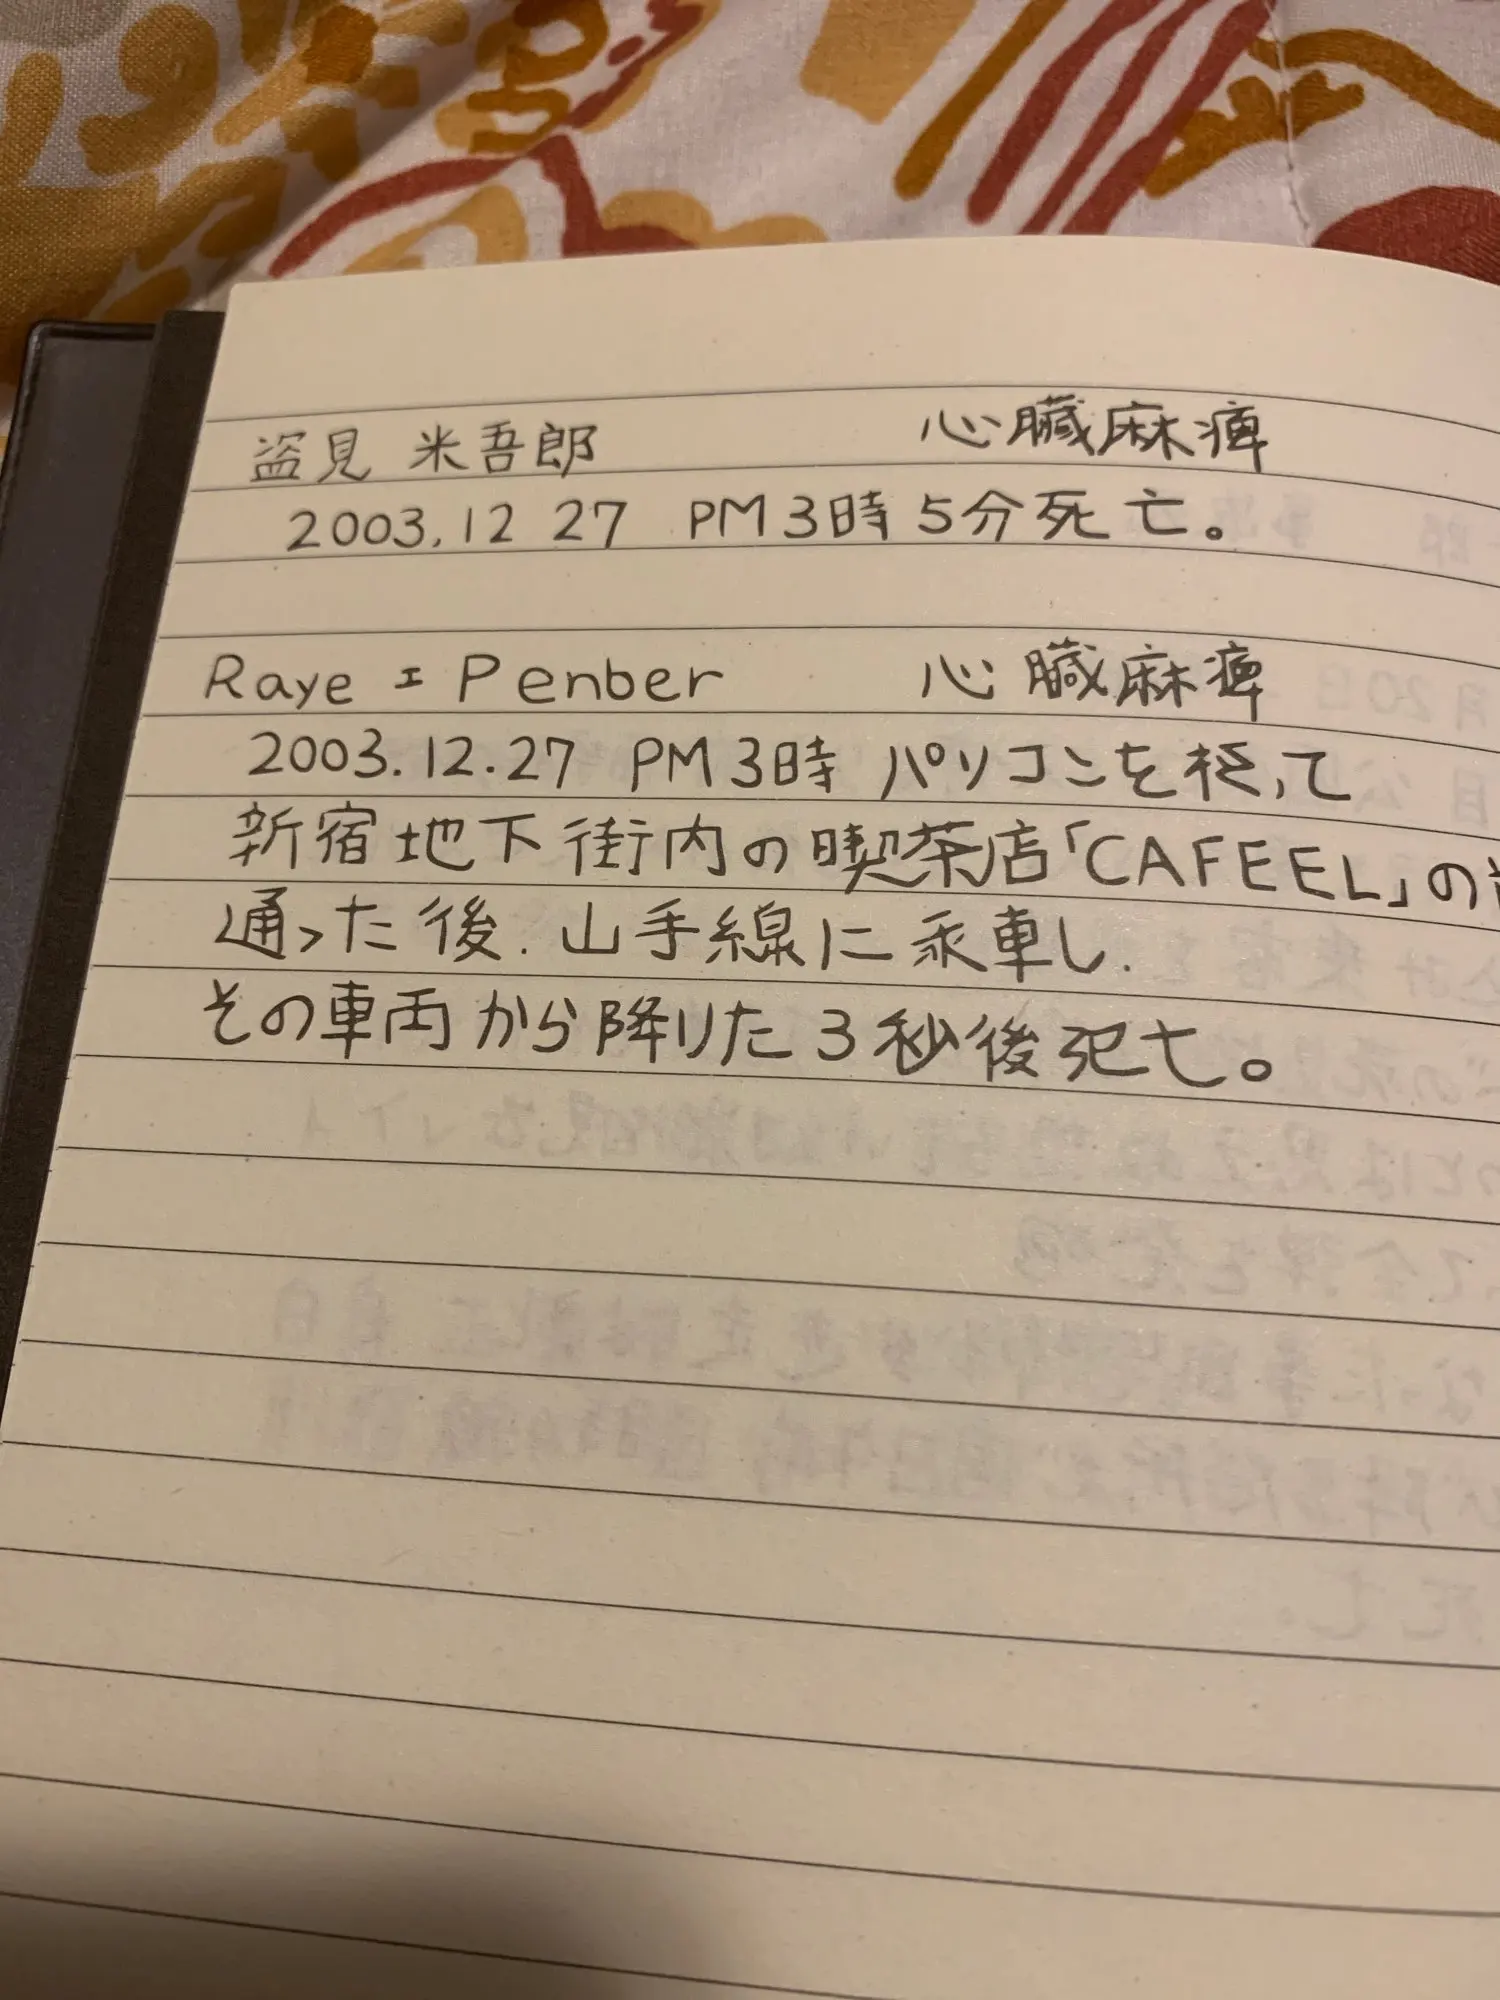 盗見 米吾郎 心臓麻痺
2003.12 27 PM3時5分死亡。
Raye = Penber 心臓麻痺
2003.12.27 PM3時 パソコンを持って
新宿地下街内の喫茶店「CAFEEL」の
通った後. 山手線に乗車し.
その車両から降りた3秒後死亡。